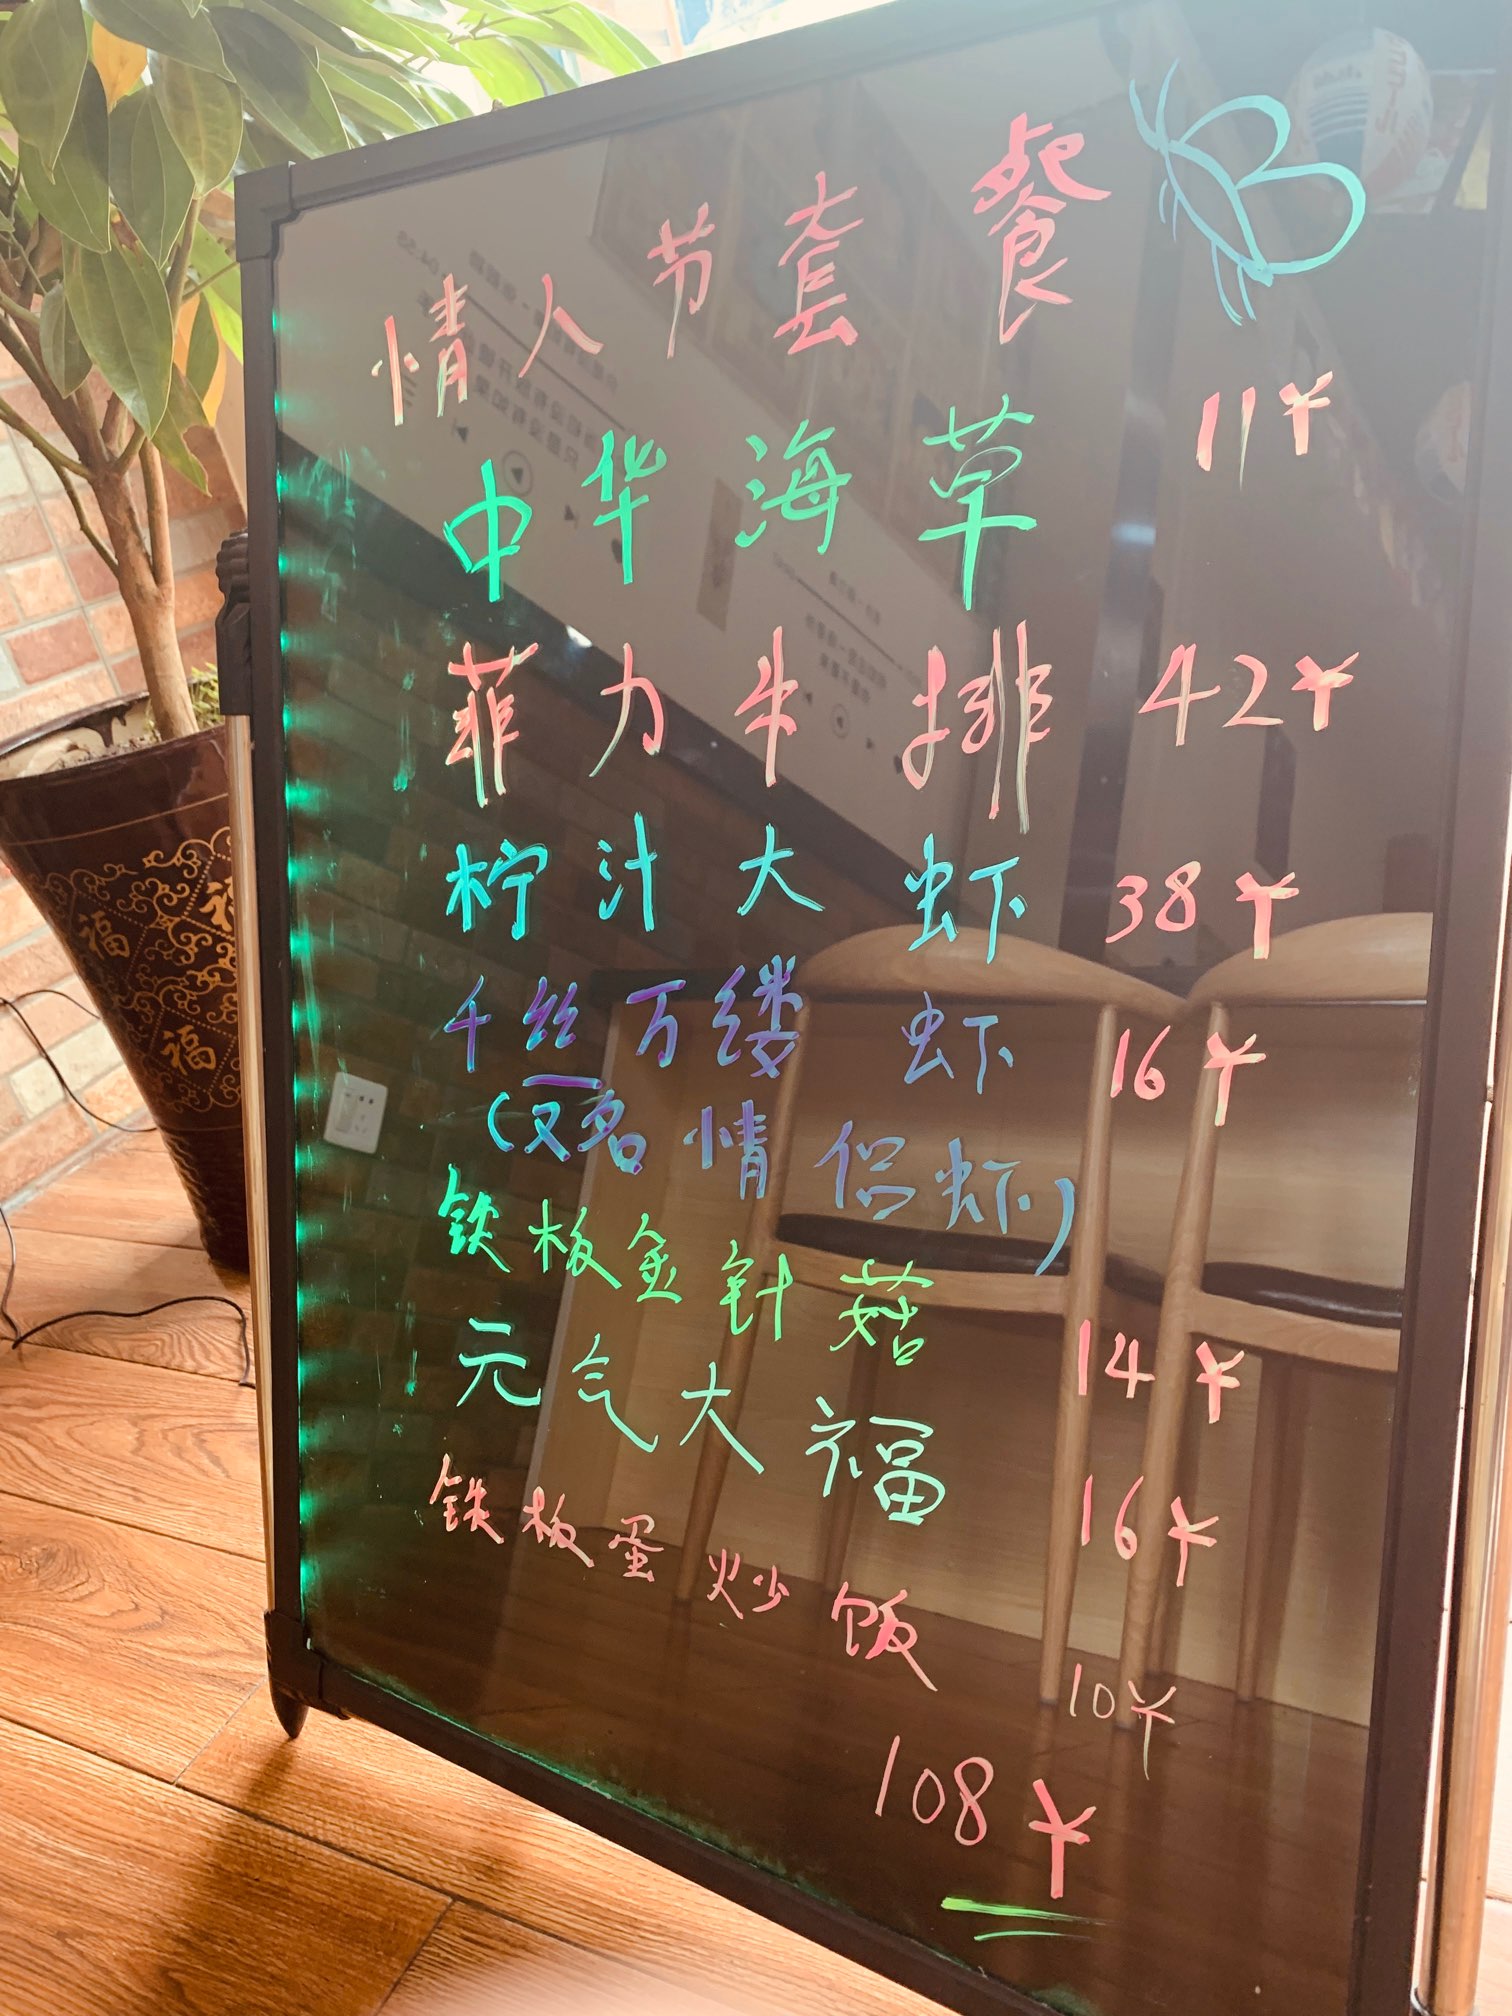 情人节套餐
中华海草 11¥
菲力牛排 42¥
柠汁大虾 38¥
千丝万缕虾 16¥
(又名情侣虾)
铁板金针菇 14¥
元气大福 16¥
铁板蛋炒饭 10¥
108¥
福
福
福